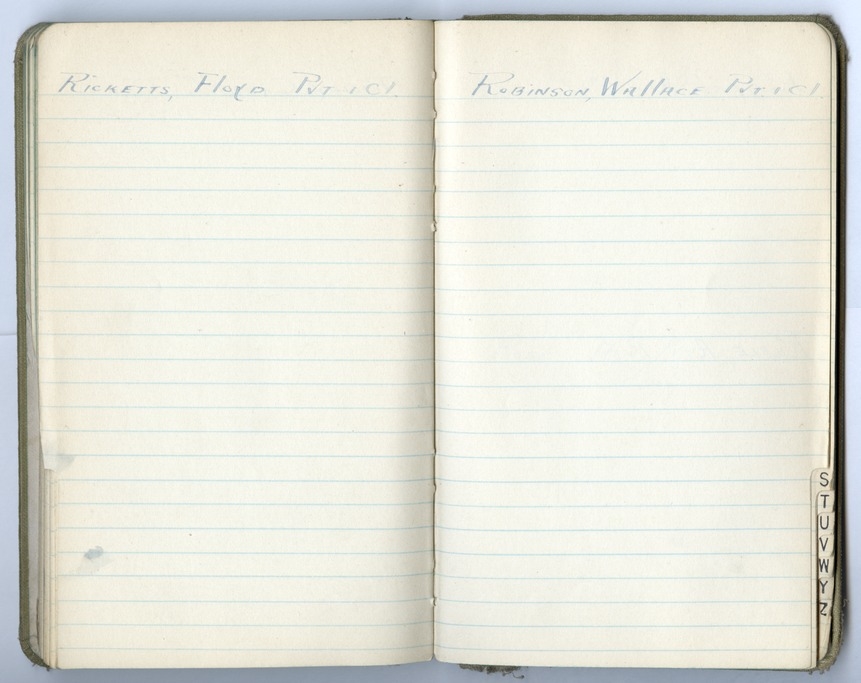 Ricketts, Floyd Pvt. 1 Cl.
Robinson, Wallace Pvt. 1 Cl.
S
T
U
V
W
Y
Z